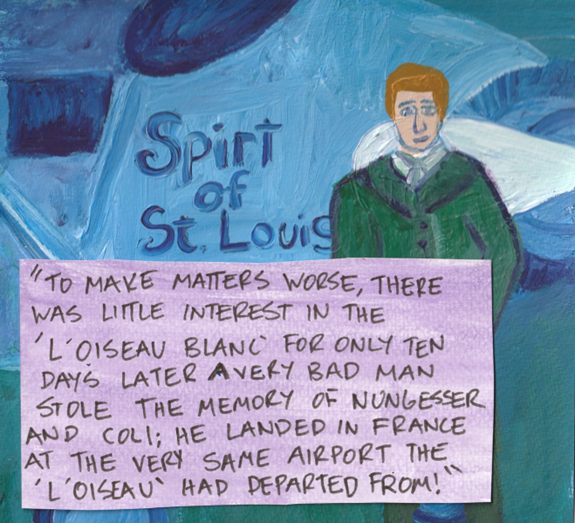 Spirt
of
St. Louis
"TO MAKE MATTERS WORSE, THERE
WAS LITTLE INTEREST IN THE
'L'OISEAU BLANC' FOR ONLY TEN
DAYS LATER A VERY BAD MAN
STOLE THE MEMORY OF NUNGESSER
AND COLI; HE LANDED IN FRANCE
AT THE VERY SAME AIRPORT THE
'L'OISEAU' HAD DEPARTED FROM!"